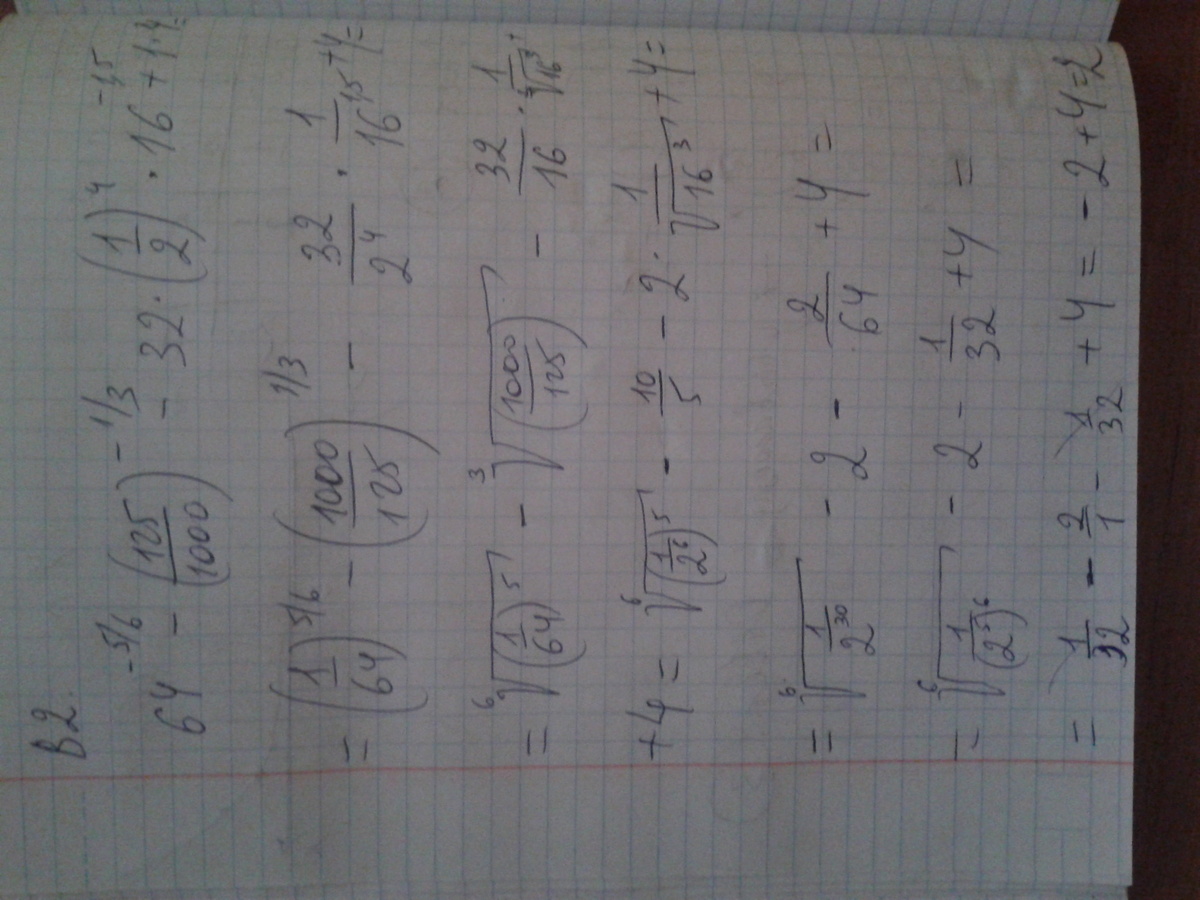 В2.
64^(-5/6) - (125/1000)^(-1/3) - 32·(1/2)^4 · 16^(-1,5) + 1·4 =
= (1/64)^(5/6) - (1000/125)^(1/3) - 32/2^4 · 1/16^(1,5) + 4 =
= ⁶√((1/64)^5) - ³√(1000/125) - 32/16 · 1/√(16^3) +
+ 4 = ⁶√((1/2^6)^5) - 10/5 - 2 · 1/√(16^3) + 4 =
= ⁶√(1/2^30) - 2 - 2/64 + 4 =
= ⁶√(1/(2^5)^6) - 2 - 1/32 + 4 =
= 1/32 - 2/1 - 1/32 + 4 = - 2 + 4 = 2